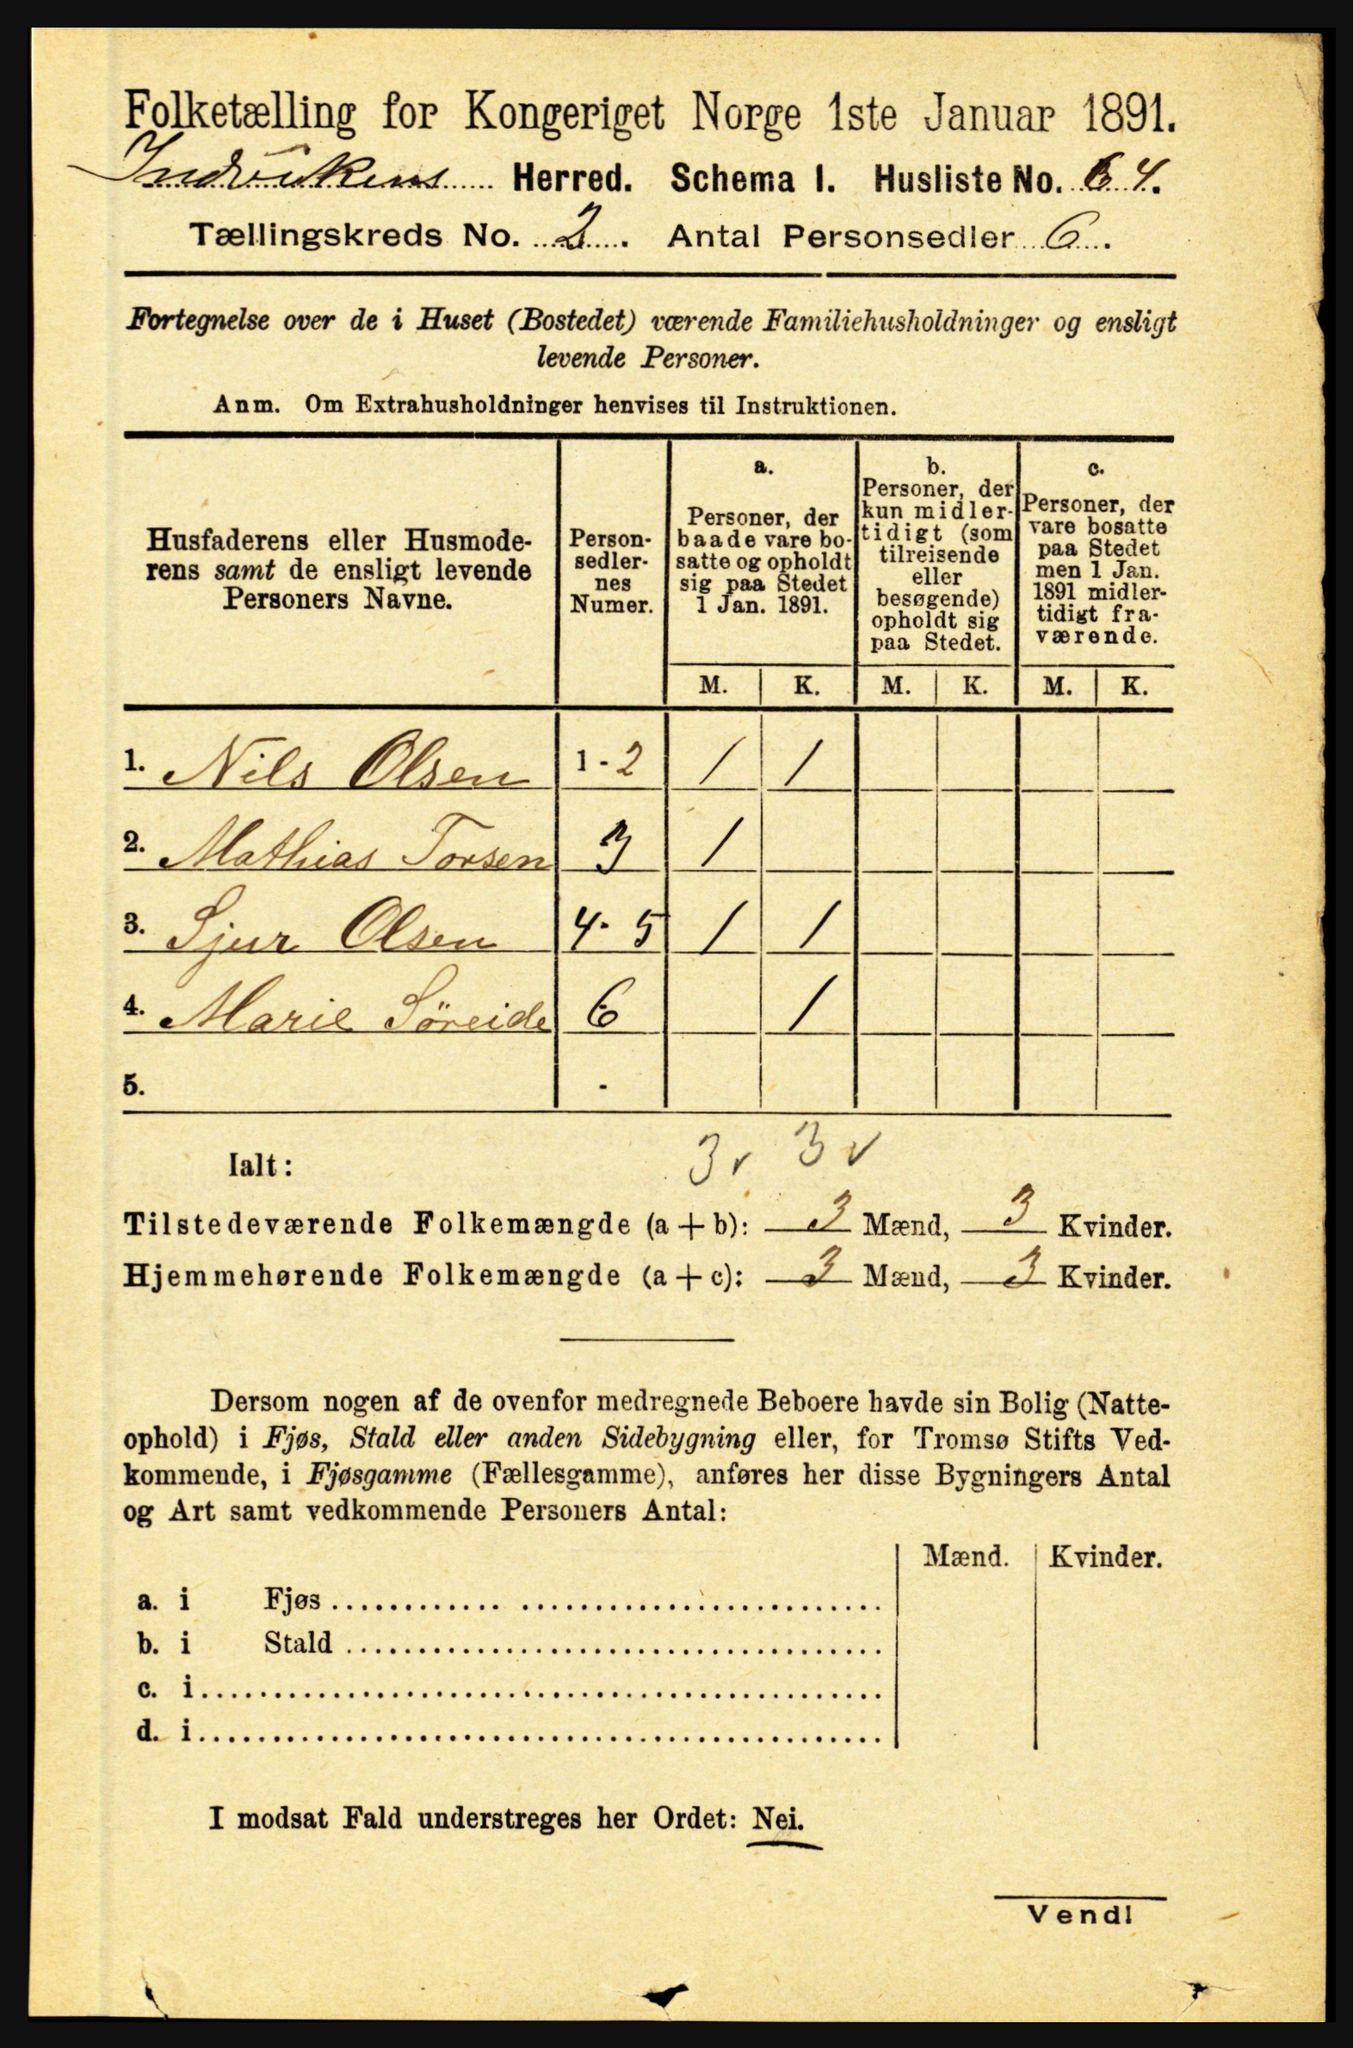 Folketælling for Kongeriget Norge 1ste Januar 1891.
Indvikens Herred. Schema I. Husliste No. 64.
Tællingskreds No. 2. Antal Personsedler 6.
Fortegnelse over de i Huset (Bostedet) værende Familiehusholdninger og ensligt
levende Personer.
Anm. Om Extrahusholdninger henvises til Instruktionen.
Husfaderens eller Husmode-
rens samt de ensligt levende
Personers Navne.
Person-
sedler-
nes
Numer.
a.
Personer, der
baade vare bo-
satte og opholdt
sig paa Stedet
1 Jan. 1891.
b.
Personer, der
kun midler-
tidigt (som
tilreisende
eller
besøgende)
opholdt sig
paa Stedet.
c.
Personer, der
vare bosatte
paa Stedet
men 1 Jan.
1891 midler-
tidigt fra-
værende.
M. K. M. K. M. K.
1. Nils Olsen 1-2 1 1
2. Mathias Torsen 3 1
3. Sjur Olsen 4-5 1 1
4. Marie Söreide 6 1
5. -
Ialt: 3 v 3 v
Tilstedeværende Folkemængde (a + b): 3 Mænd, 3 Kvinder.
Hjemmehørende Folkemængde (a + c): 3 Mænd, 3 Kvinder.
Dersom nogen af de ovenfor medregnede Beboere havde sin Bolig (Natte-
ophold) i Fjøs, Stald eller anden Sidebygning eller, for Tromsø Stifts Ved-
kommende, i Fjøsgamme (Fællesgamme), anføres her disse Bygningers Antal
og Art samt vedkommende Personers Antal:
Mænd. Kvinder.
a. i Fjøs
b. i Stald
c. i
d. i
I modsat Fald understreges her Ordet: Nei.
Vend!